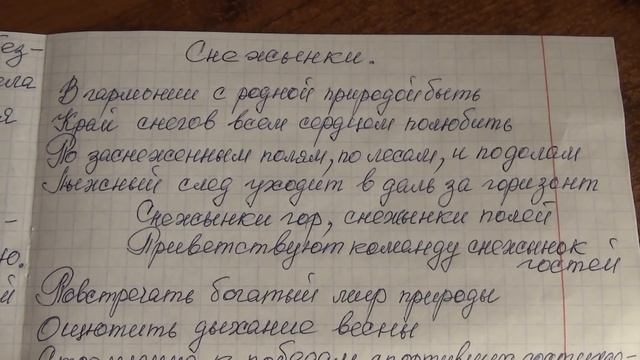 Снежынки.
В гармонии с родной природой быть
Край снегов всем сердцом полюбить
По заснеженным полям, по лесам, и по долам
Лыжный след уходит в даль за горизонт
Снежынки гор, снежынки полей
Приветствуют команду снежынок
гостей
Повстречать богатый мир природы
Ощютить дыхание весны